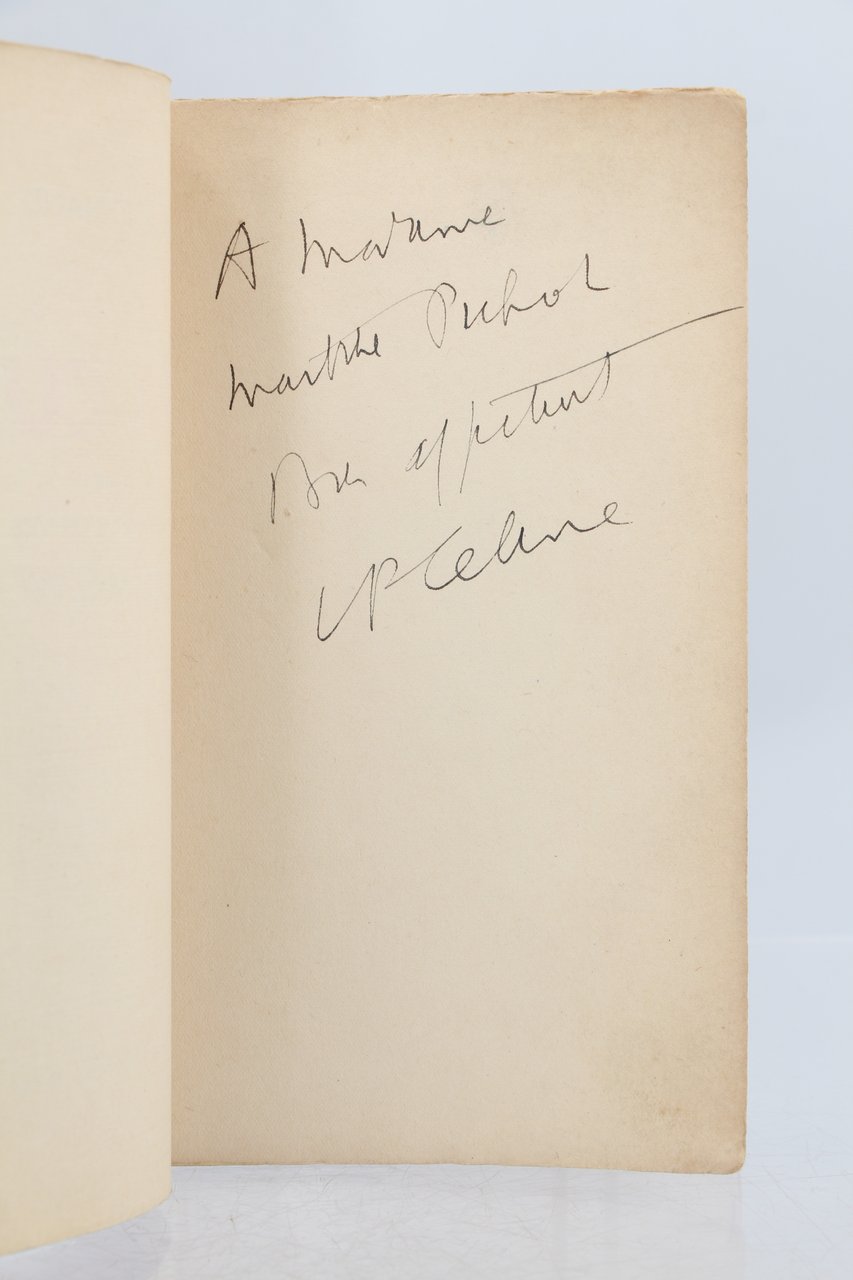 A Madame
Marthe Pichot
Bon appétit
LF Celine